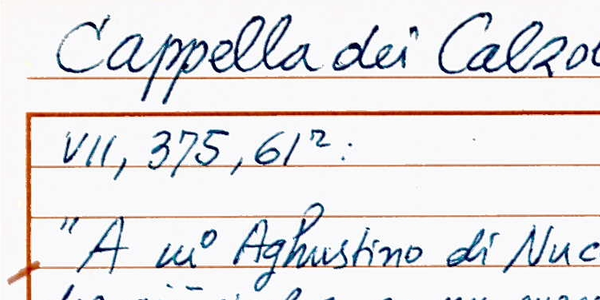 Cappella dei Calzo
VII, 375, 61²:
"A mº Aghustino di Nuc